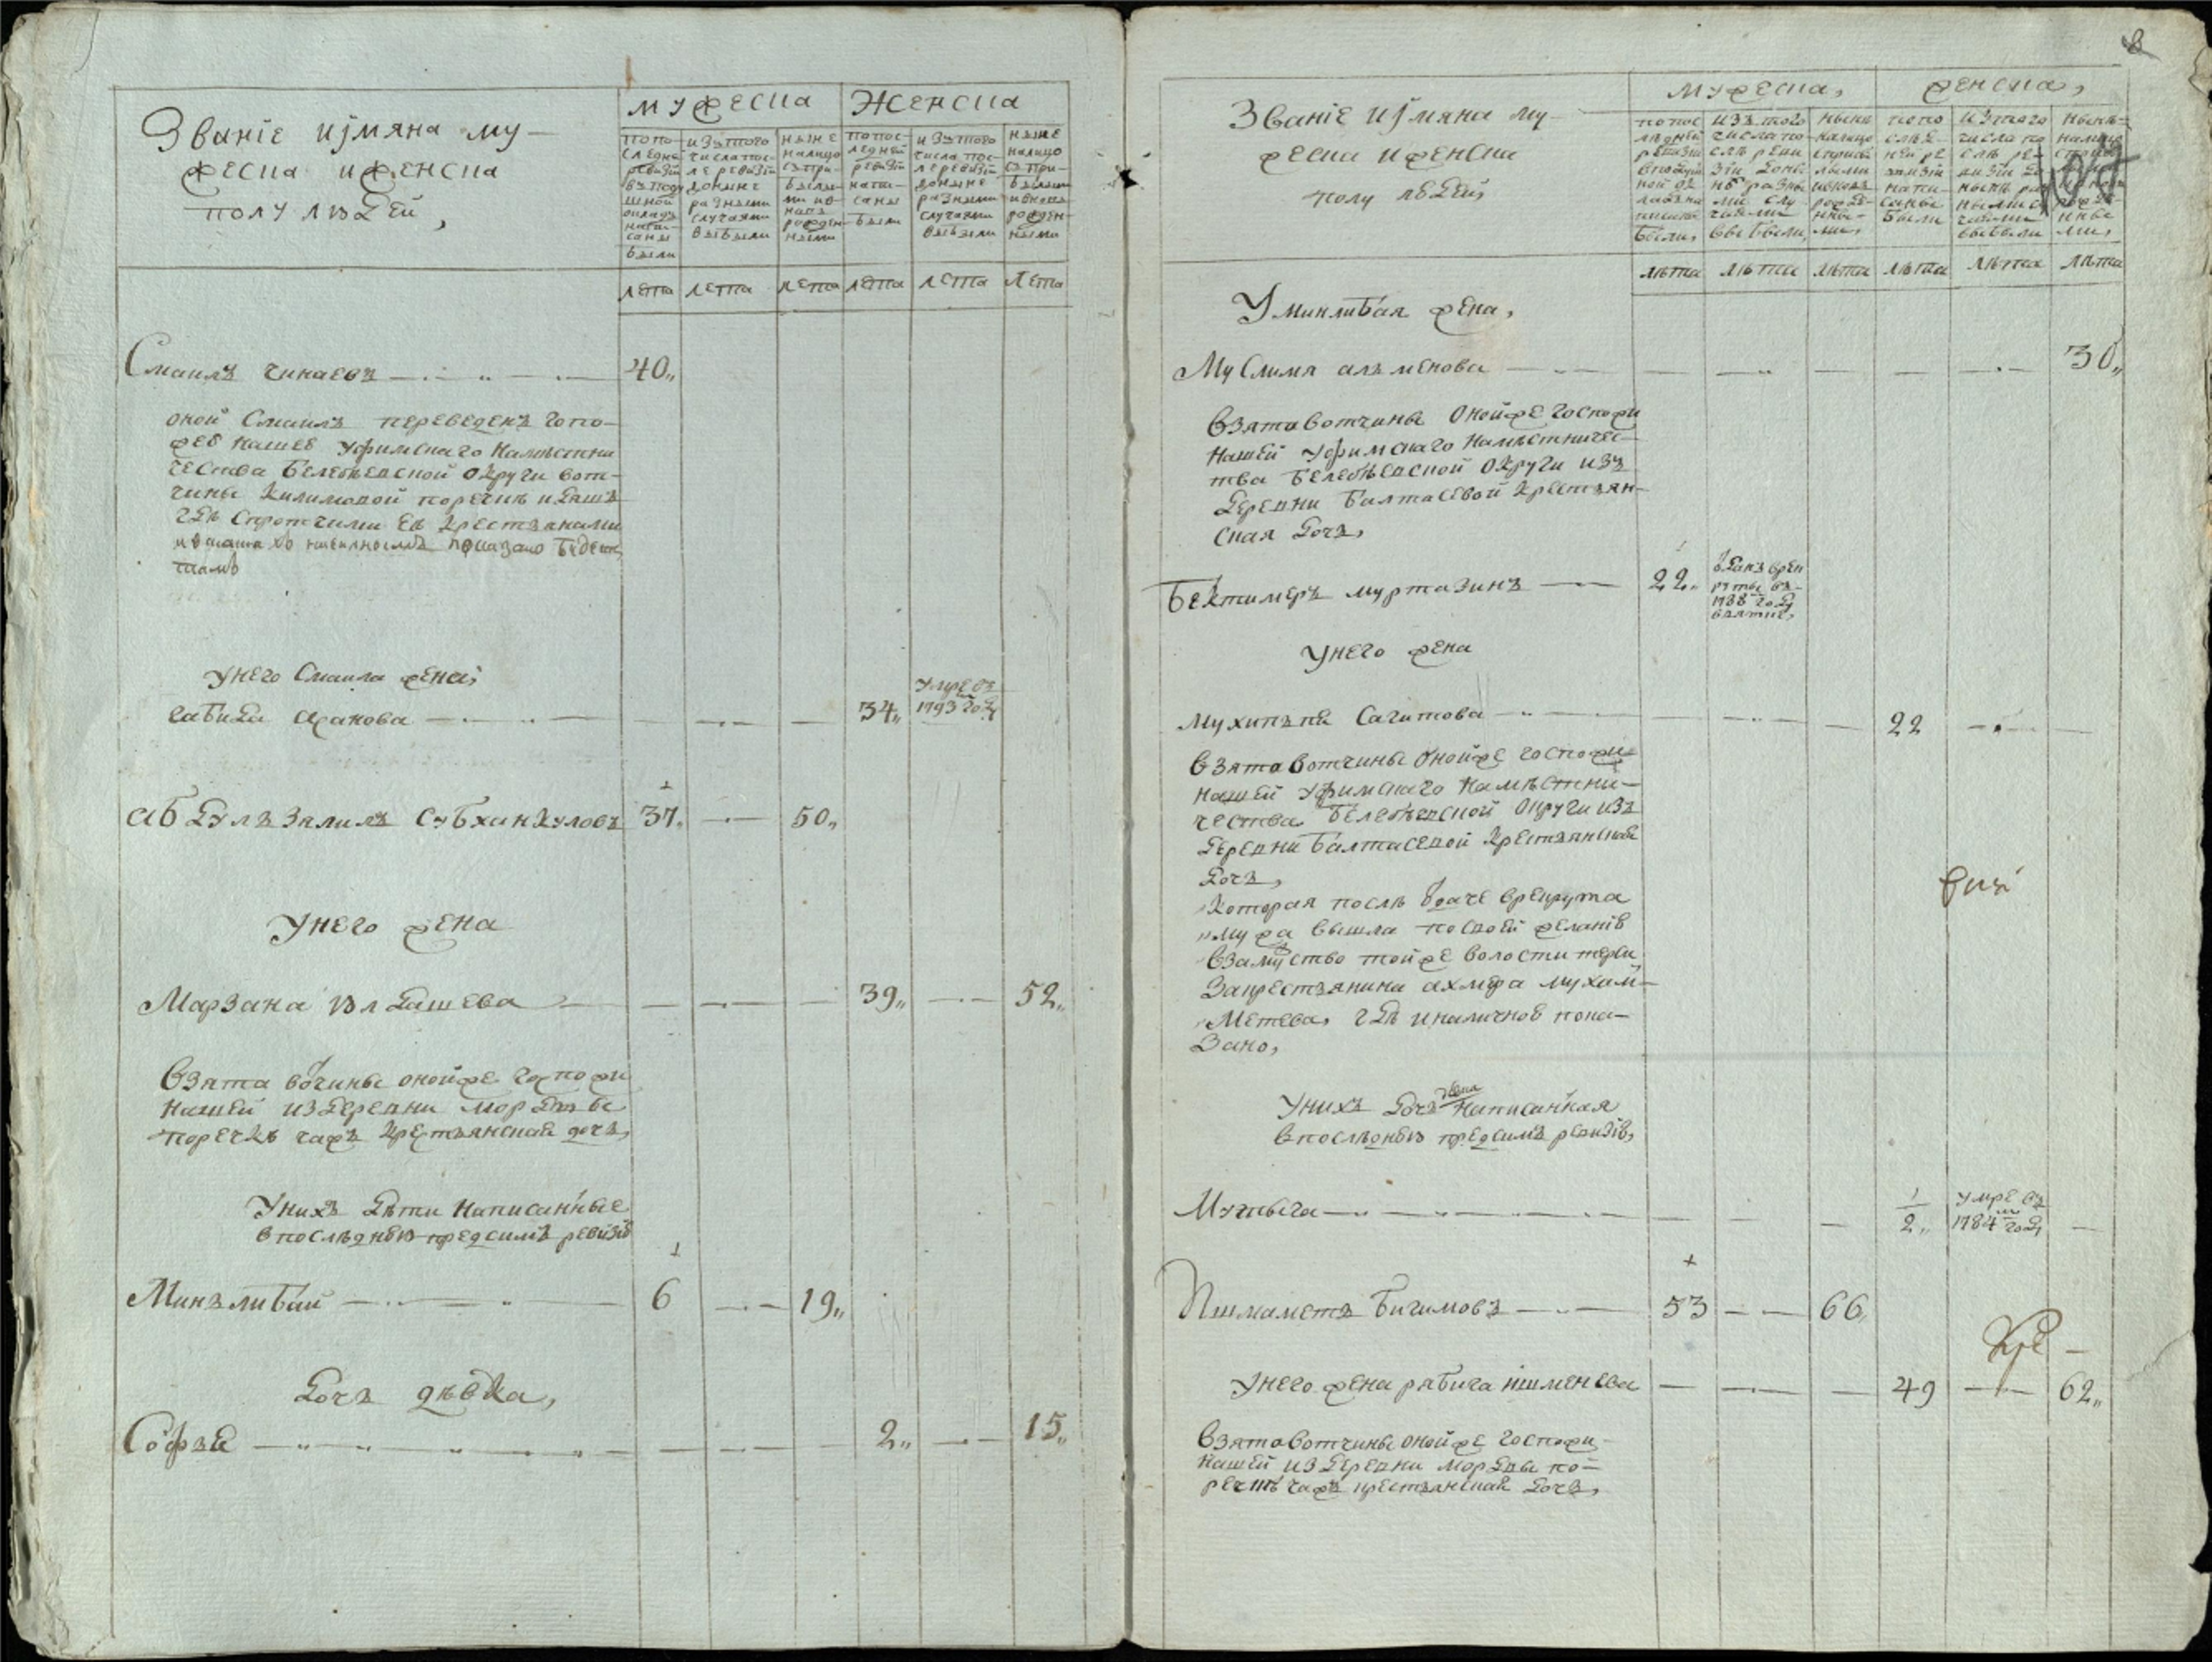 Званіе иjмяна му-
жеска иженска
полу людей,
мужеска Женска
попо-
следне
ревизіи
вподу
шной
окладъ
напи-
саны
были
изътого
числапос-
ле ревизіи
доныне
разными
случаями
выбыли
ныне
налицо
съпри-
былы-
ми ив-
новь
рожден-
ными
попос-
ледней
ревизіи
напи-
саны
были
изътого
числа пос-
ле ревизіи
доныне
разными
случаями
выбыли
ныне
налицо
съпри-
былыми
ивновь
рожден-
ными
лета лета лета лета лета лета
Смаилъ чинаевъ 40,,
оной Смаилъ переведенъ Госпо-
жею нашею Уфимскаго Намѣстни
чества Белебѣевской округи вот-
чины Килимовой поречкѣ идяшъ
гдѣ спротчими ея крестьянами
показано будетъ
тамо
унего Смаила жена,
габида асанова 34,, умре въ
1793 году
абдулъзялилъ субханкуловъ 37,, 50,,
Унего жена
Марзана юлдашева 39,, 52,,
Взята вочины онойже госпожи
нашей издеревни мордвы
поречкѣ чажъ крестьянская дочь,
Унихъ дѣти написанные
впоследнею предсимъ ревизію
Минълибай 6 19,,
дочь дѣвка,
Софья 2,, 15,,
8
Званіе иjмяна му-
жеска иженска
полу людей,
мужеска, женска,
попос
ледней
ревизіи
вподуш
ной ок
ладъ на
писаны
были,
изъ того
числа по-
слѣ реви
зіи доны
нѣ разны
ми слу
чаями
выбыли,
ныне
налицо
сприбы
лыми
ивновь
рожде-
нны-
ми,
попо
слѣд-
ней ре
визіи
напи-
саны
были
изтого
числа по
слѣ ре-
визіи до
нынѣ ра
зными с
чаями
выбыли
нынѣ
налицо
рожде
нны
ми,
лѣта лѣта лѣта лѣта лѣта лѣта
Уминлибая жена,
Муслимя альменова 30,,
Взята вотчины онойже госпожи
нашей Уфимскаго намѣстничес-
тва Белебѣевской округи изъ
деревни Балтасевой крестьян-
ская дочь,
Бектимеръ муртазинъ 22,, данъ врек
руты въ
1788 году
взятие,
Унего жена
Мухипъпя Сагитова 22
Взята вотчины онойже госпожи
нашей Уфимскаго намѣстни-
чества Белебѣевской округи изъ
деревни Балтасевой крестьянская
дочь,
Которая послѣ дачи врекрута
мужа вышла посвоей желанію
взамуство тойже волости
закрестьянина ахмера мухам-
метева, гдѣ иналичною пока-
зано,
Унихъ дочь написанная
впослѣднею предсимъ ревизію,
Мугыга 2,, умре въ
1784 году
Ишмаметъ Бигимовъ 53 66,,
унего жена рябига ишменева 49 62,,
Взята вотчины онойже госпожи
нашей издеревни мордвы по-
речкѣ чажъ крестьянская дочь,